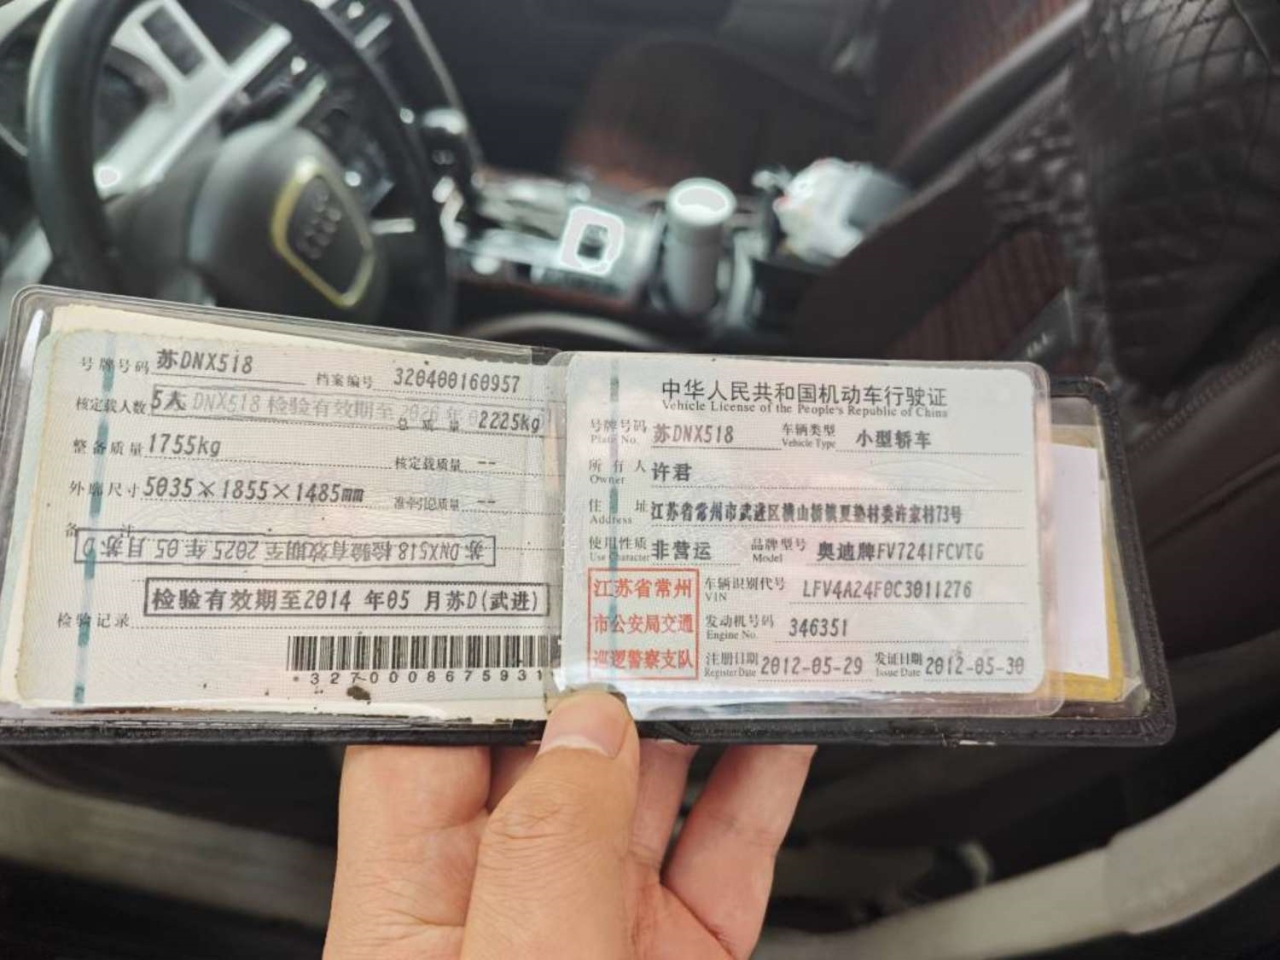 号牌号码 苏DNX518 档案编号 320400160957
核定载人数 5人 总质量 2225kg
DNX518 检验有效期至2026年
整备质量 1755kg 核定载质量 --
外廓尺寸 5035×1855×1485mm 准牵引总质量 --
备注
苏DNX518检验有效期至2025年05月苏D
检验有效期至2014年05月苏D(武进)
检验记录
*327000867593 1
中华人民共和国机动车行驶证
Vehicle License of the People's Republic of China
号牌号码 苏DNX518 车辆类型 小型轿车
Plate No. Vehicle Type
所有人 许君
Owner
住址 江苏省常州市武进区横山桥镇夏墅村委许家村73号
Address
使用性质 非营运 品牌型号 奥迪牌FV7241FCVTG
Use Character Model
江苏省常州
市公安局交通
巡逻警察支队
车辆识别代号 LFV4A24F0C3011276
VIN
发动机号码 346351
Engine No.
注册日期 2012-05-29 发证日期 2012-05-30
Register Date Issue Date